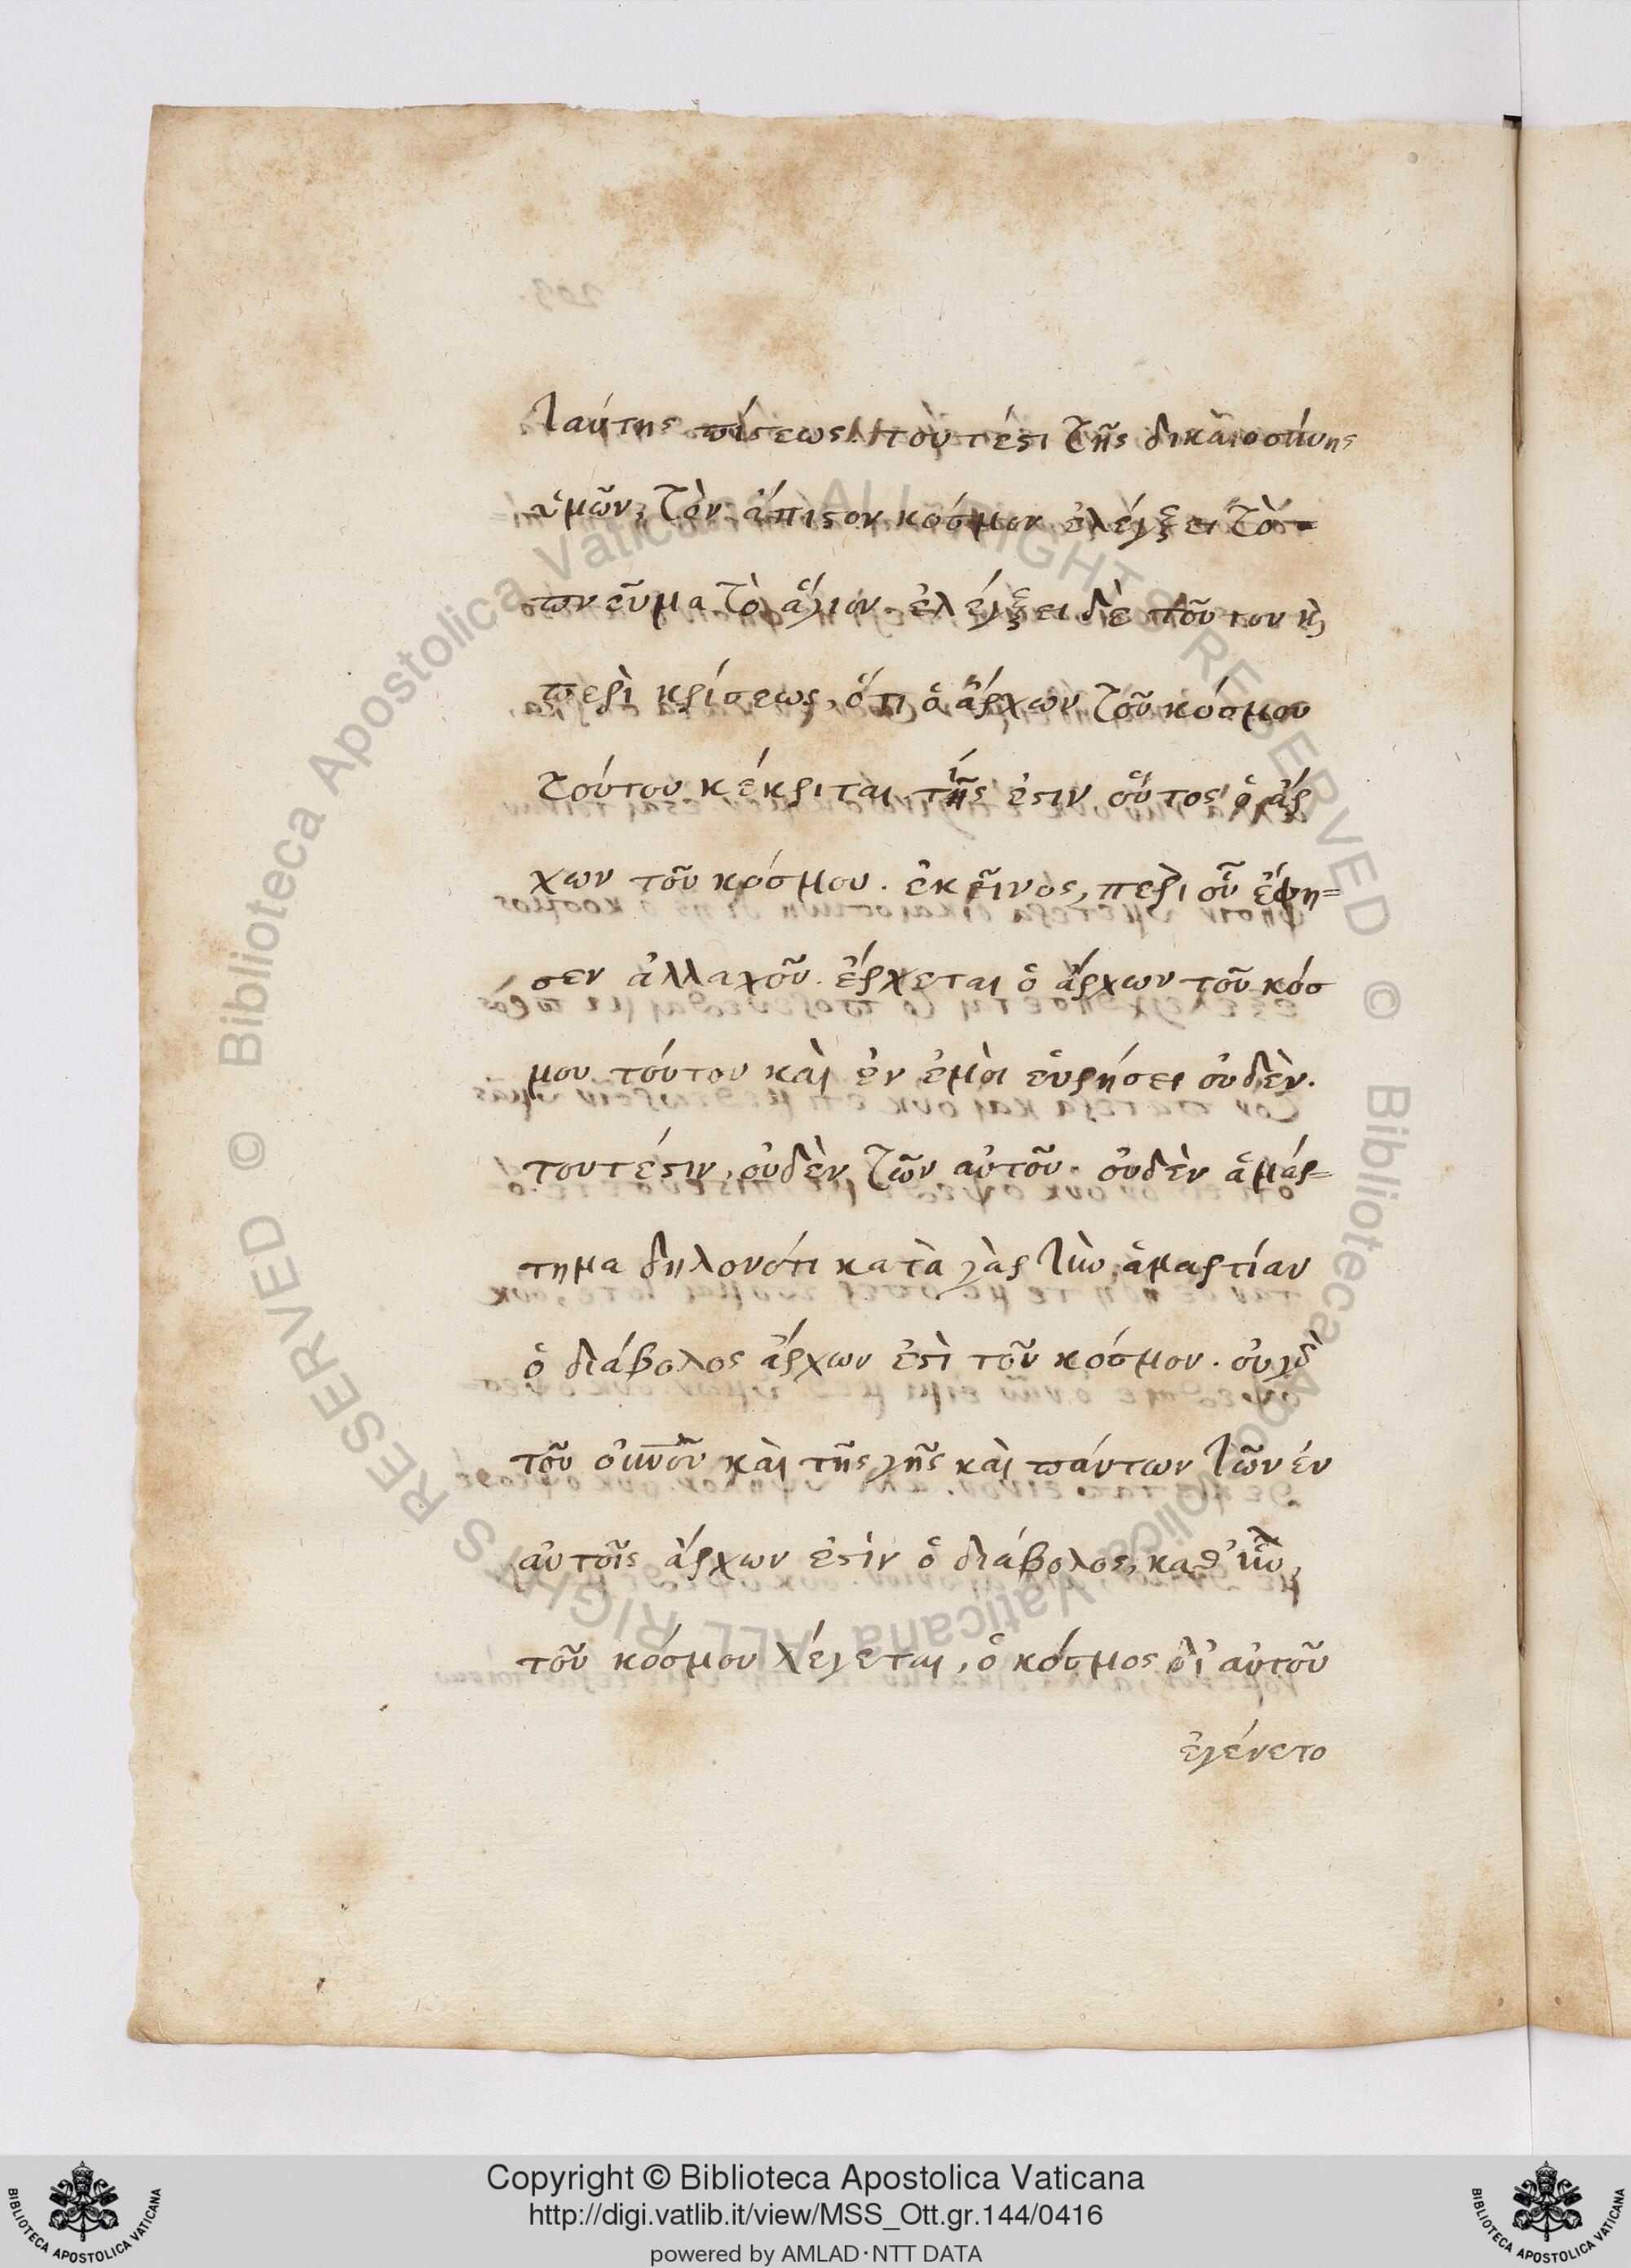 ταύτης πίστεως. τουτέστι τῆς δικαιοσύνης
ὑμῶν, τὸν ἄπιστον κόσμον ἐλέγξει τὸ
πνεῦμα τὸ ἅγιον. ἐλέγξει δὲ τοῦτον κ̀
περὶ κρίσεως, ὅτι ὁ ἄρχων τοῦ κόσμου
τούτου κέκριται. τίς ἐστιν οὗτος ὁ ἄρ
χων τοῦ κόσμου. ἐκεῖνος, περὶ οὗ ἔφη=
σεν ἀλλαχοῦ. ἔρχεται ὁ ἄρχων τοῦ κόσ
μου τούτου καὶ ἐν ἐμὸι εὑρήσει οὐδὲν.
τουτέστιν, οὐδὲν τῶν αὐτοῦ. οὐδὲν ἁμάρ=
τημα δηλονότι κατὰ γὰρ τὴν ἁμαρτίαν
ὁ διάβολος ἄρχων ἐστὶ τοῦ κόσμου. οὐ γὰρ
τοῦ οὐνοῦ καὶ τῆς γῆς καὶ πάντων τῶν ἐν
αὐτοῖς ἄρχων ἐστὶν ὁ διάβολος, καθ' ἣν
τοῦ κόσμου λέγεται, ὁ κόσμος δι' αὐτοῦ
ἐγένετο
Copyright © Biblioteca Apostolica Vaticana
http://digi.vatlib.it/view/MSS_Ott.gr.144/0416
powered by AMLAD·NTT DATA
BIBLIOTECA APOSTOLICA VATICANA
BIBLIOTECA APOSTOLICA VATICANA
© Biblioteca Apostolica Vaticana ALL RIGHTS RESERVED
© Biblioteca Apostolica Vaticana ALL RIGHTS RESERVED